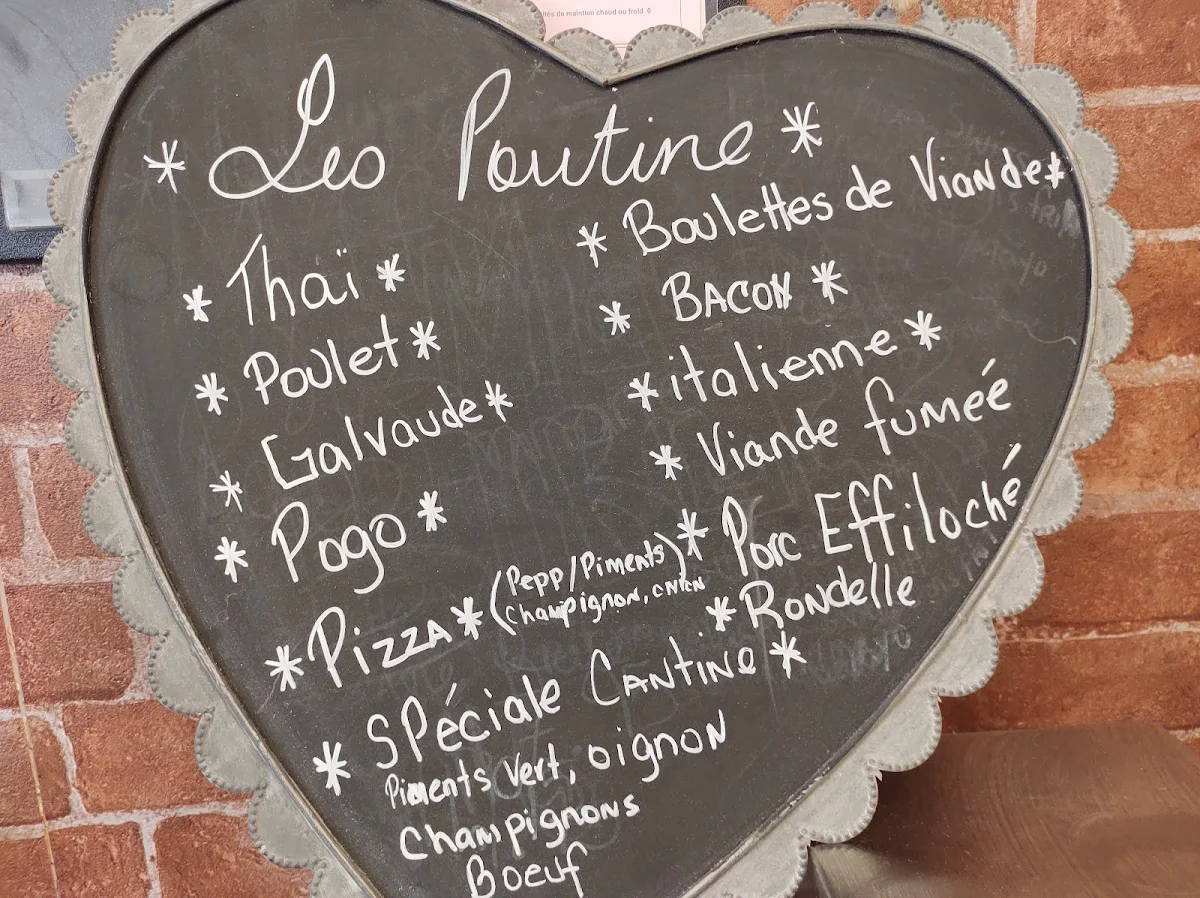 ités de maintien chaud ou froid 6
* Les Poutine *
* Thaï *
* Poulet *
* Galvaude *
* Pogo *
* Pizza * (Pepp/Piments)
Champignon, onion
* Boulettes de Viande *
* BACON *
* italienne *
* Viande fumeé
* Porc Effiloché
* Rondelle
* SPéciale Cantine *
Piments Vert, oignon
Champignons
Boeuf